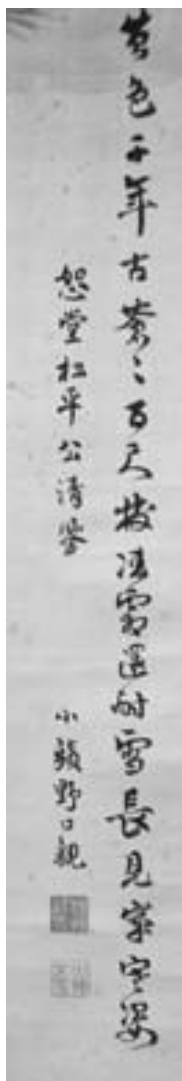 色千年古蒼〻百尺凌霜還耐雪長見歳寒姿
恕堂松平公清鑒
小蘋野口親